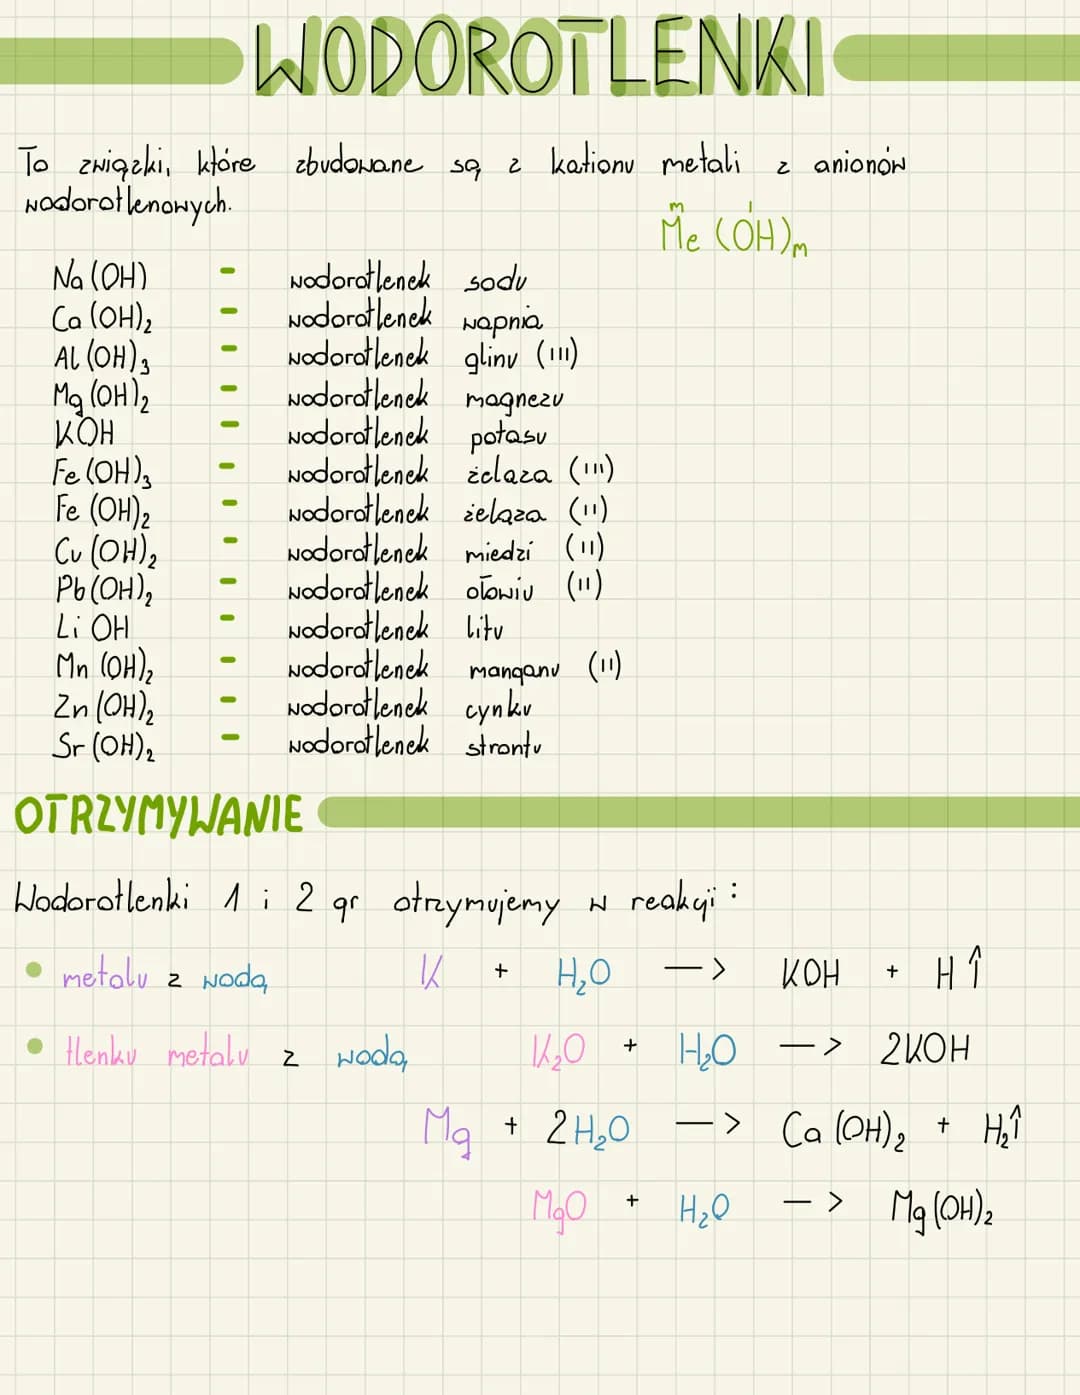 WODOROTLENKI
To związki, które zbudowane są z kationu metali z anionów
wodorotlenowych.
m I
Me (OH)m
Na (OH) - wodorotlenek sodu
Ca (OH)₂ - wodorotlenek wapnia
Al (OH)₃ - wodorotlenek glinu (III)
Mg (OH)₂ - wodorotlenek magnezu
KOH - wodorotlenek potasu
Fe (OH)₃ - wodorotlenek żelaza (III)
Fe (OH)₂ - wodorotlenek żelaza (II)
Cu (OH)₂ - wodorotlenek miedzi (II)
Pb (OH)₂ - wodorotlenek ołowiu (II)
Li OH - wodorotlenek litu
Mn (OH)₂ - wodorotlenek manganu (II)
Zn (OH)₂ - wodorotlenek cynku
Sr (OH)₂ - wodorotlenek strontu
OTRZYMYWANIE
Wodorotlenki 1 i 2 gr otrzymujemy w reakcji :
• metalu z wodą K + H₂O —> KOH + H↑
• tlenku metalu z wodą K₂O + H₂O —> 2KOH
Mg + 2H₂O —> Ca (OH)₂ + H₂↑
MgO + H₂O —> Mg (OH)₂